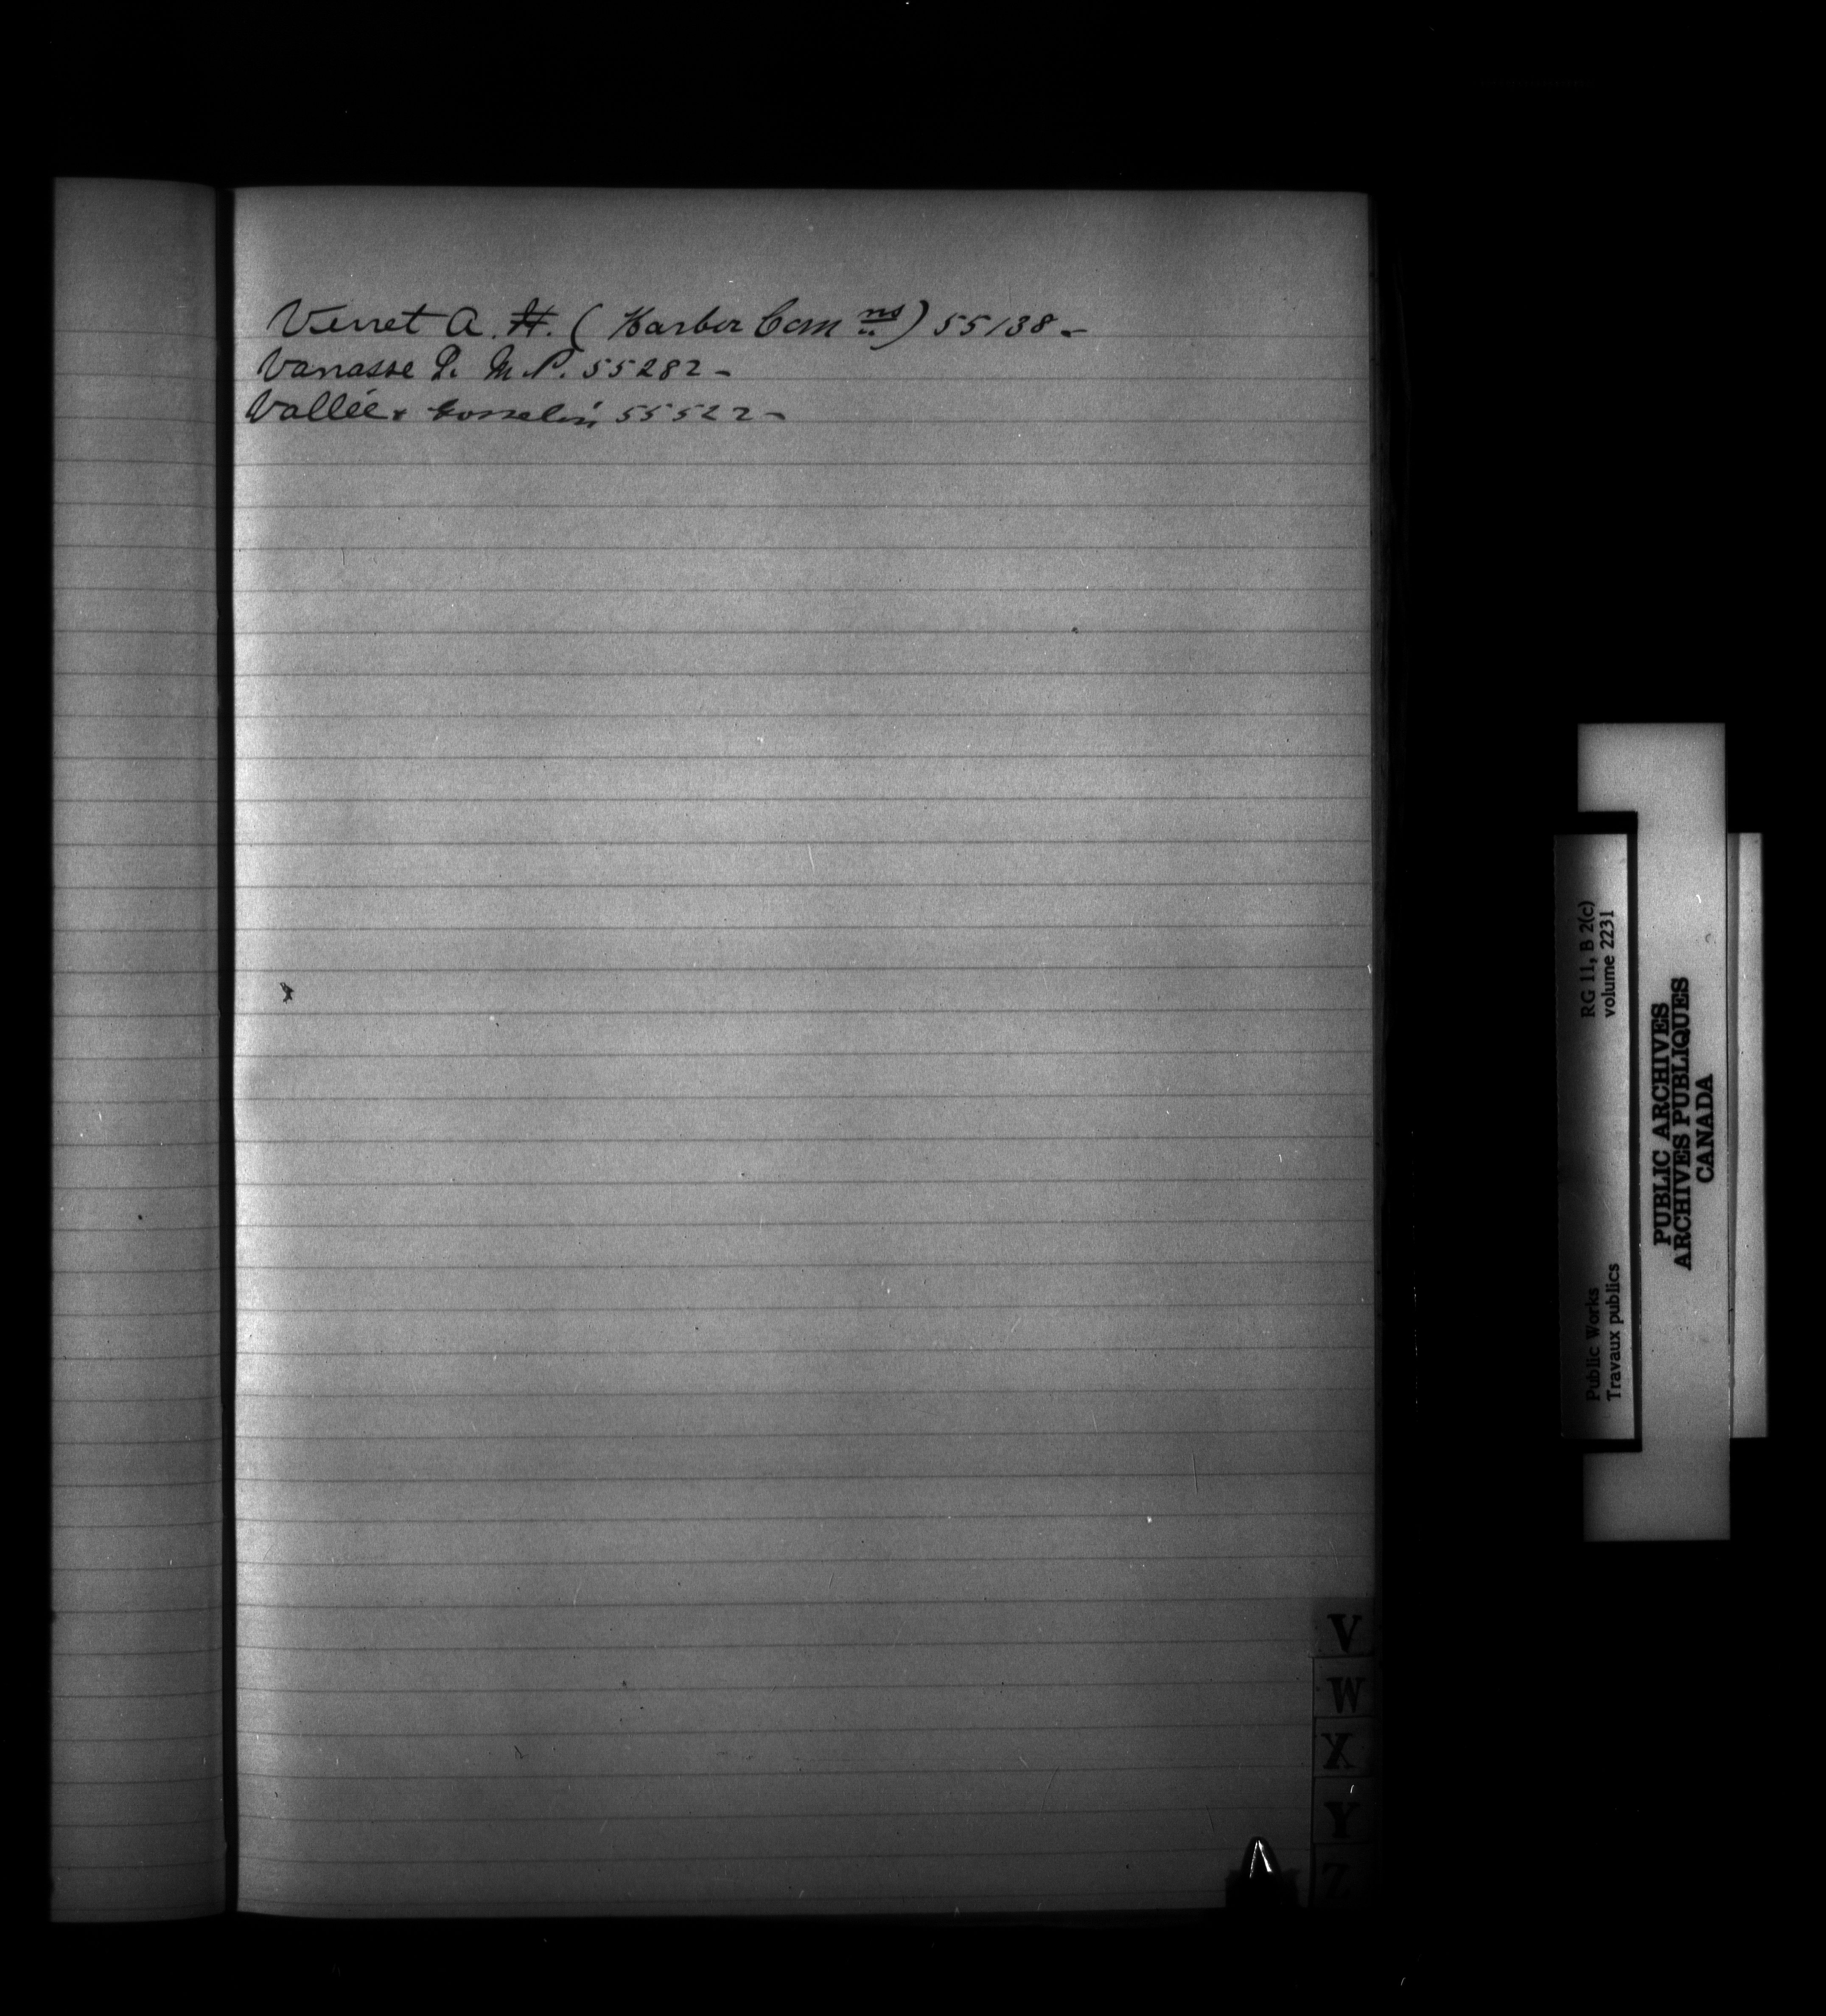 Verret A. H. (Harbor Com ns) 55138 -
Vanasse P. M.P. 55282 -
Vallée & Gosselin 55522 -
V
W
X
Y
Z
RG 11, B 2(c)
volume 2231
Public Works
Travaux publics
PUBLIC ARCHIVES
ARCHIVES PUBLIQUES
CANADA